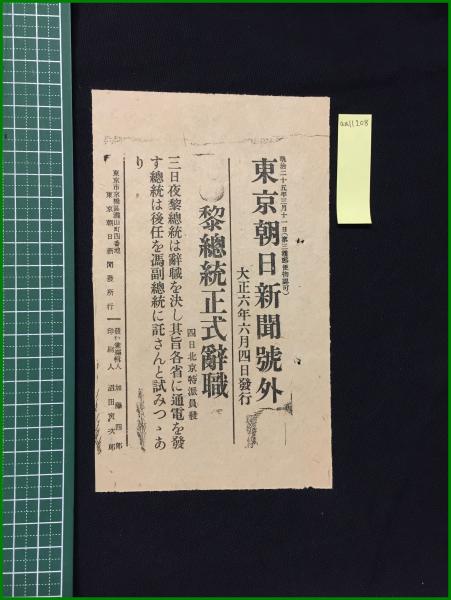 明治二十五年三月十一日(第三種郵便物認可)
東京朝日新聞號外
大正六年六月四日發行
黎總統正式辭職
四日北京特派員發
三日夜黎總統は辭職を決し其旨各省に通電を發
す總統は後任を馮副總統に託さんと試みつゝあ
り
東京市京橋區瀧山町四番地
東京朝日新聞發行所
發行兼編輯人 加藤四郎
印刷人 沼田寅次郎
aa11208